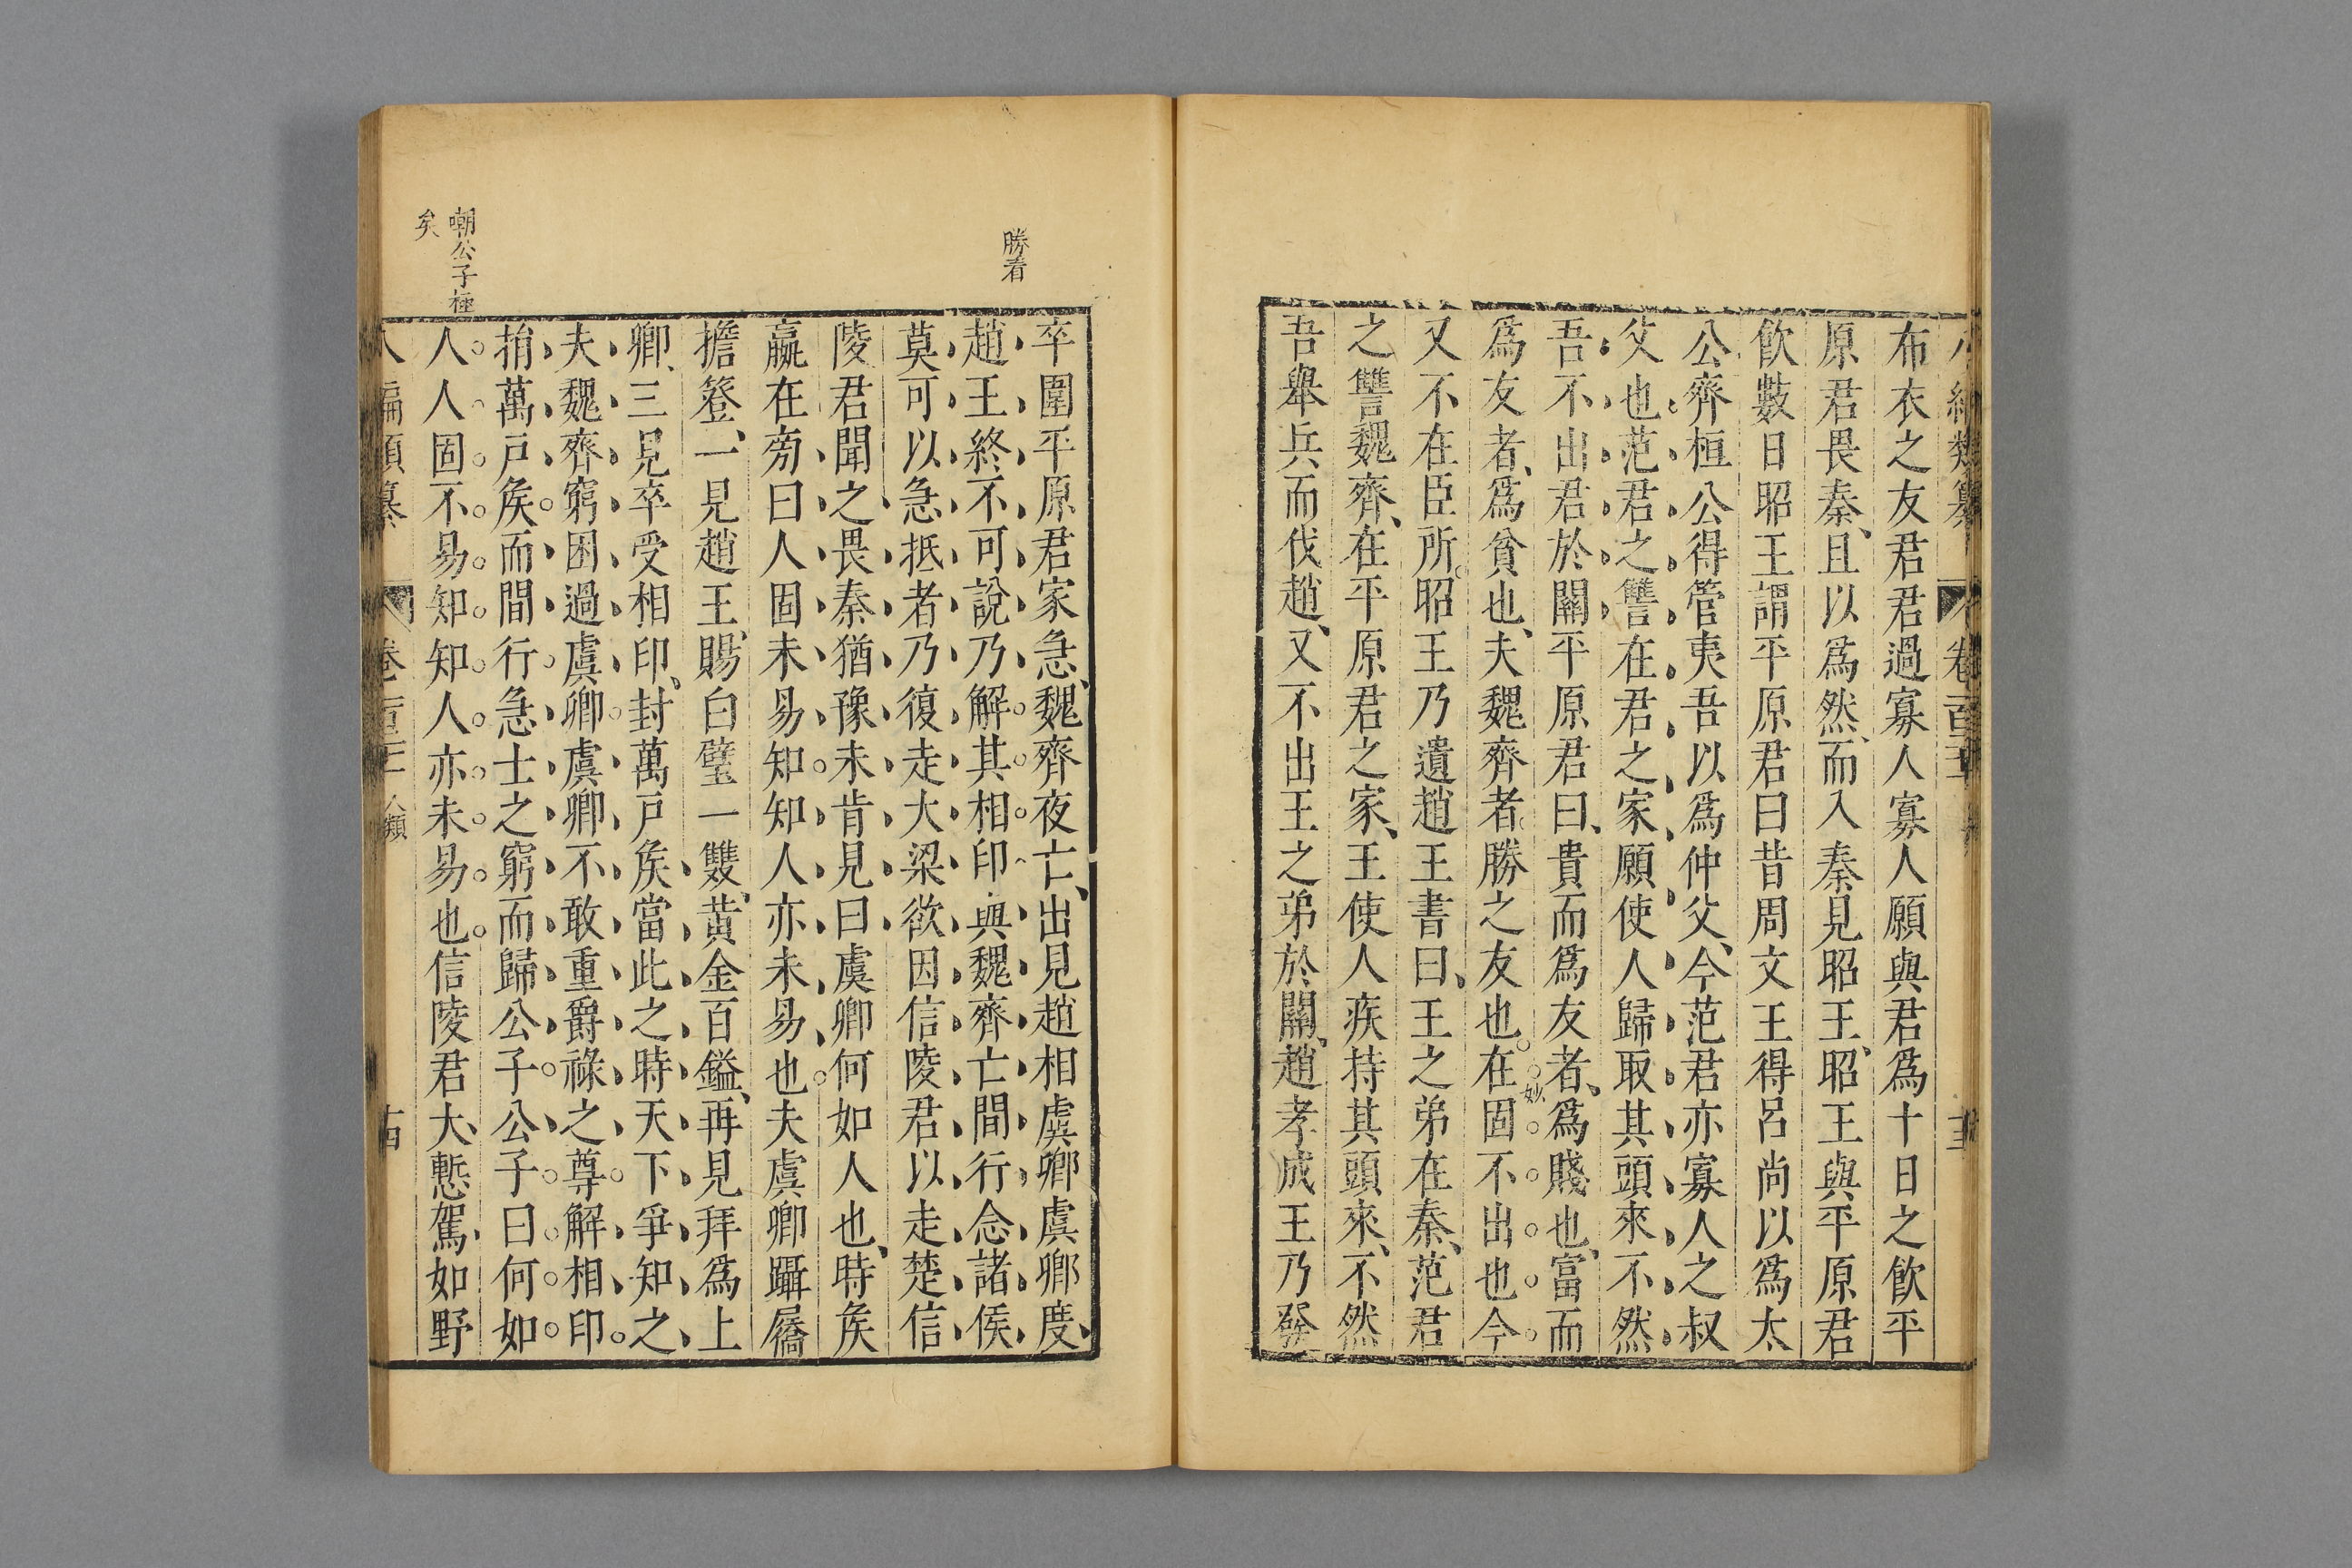 布衣之友君君過寡人寡人願與君爲十日之飲平
原君畏秦、且以爲然、而入秦見昭王、昭王與平原君
飲數日昭王謂平原君曰昔周文王得呂尚以爲太
公齊桓公得管夷吾以爲仲父、今范君亦寡人之叔
父也范君之讐在君之家願使人歸取其頭來不然
吾不出君於關平原君曰、貴而爲友者、爲賤也、富而
爲友者、爲貧也、夫魏齊者勝之友也在固不出也今
妙
又不在臣所昭王乃遺趙王書曰、王之弟在秦、范君
之讐魏齊、在平原君之家、王使人疾持其頭來、不然
吾舉兵而伐趙、又不出王之弟於關、趙孝成王乃發
勝看
卒圍平原君家急、魏齊夜亡、出見趙相虞卿虞卿度、
趙王終不可說乃解其相印與魏齊亡間行念諸侯
莫可以急抵者乃復走大梁欲因信陵君以走楚信
陵君聞之畏秦猶豫未肯見曰虞卿何如人也、時矦
嬴在旁曰人固未易知知人亦未易也夫虞卿躡屩
擔簦、一見趙王、賜白璧一雙、黃金百鎰、再見拜爲上
卿、三見卒受相印、封萬戸矦當此之時天下爭知之
夫魏齊窮困過虞卿虞卿不敢重爵祿之尊解相印
捐萬戸矦而間行急士之窮而歸公子公子曰何如
嘲公子極
矣
人人固不易知知人亦未易也信陵君大慙駕如野